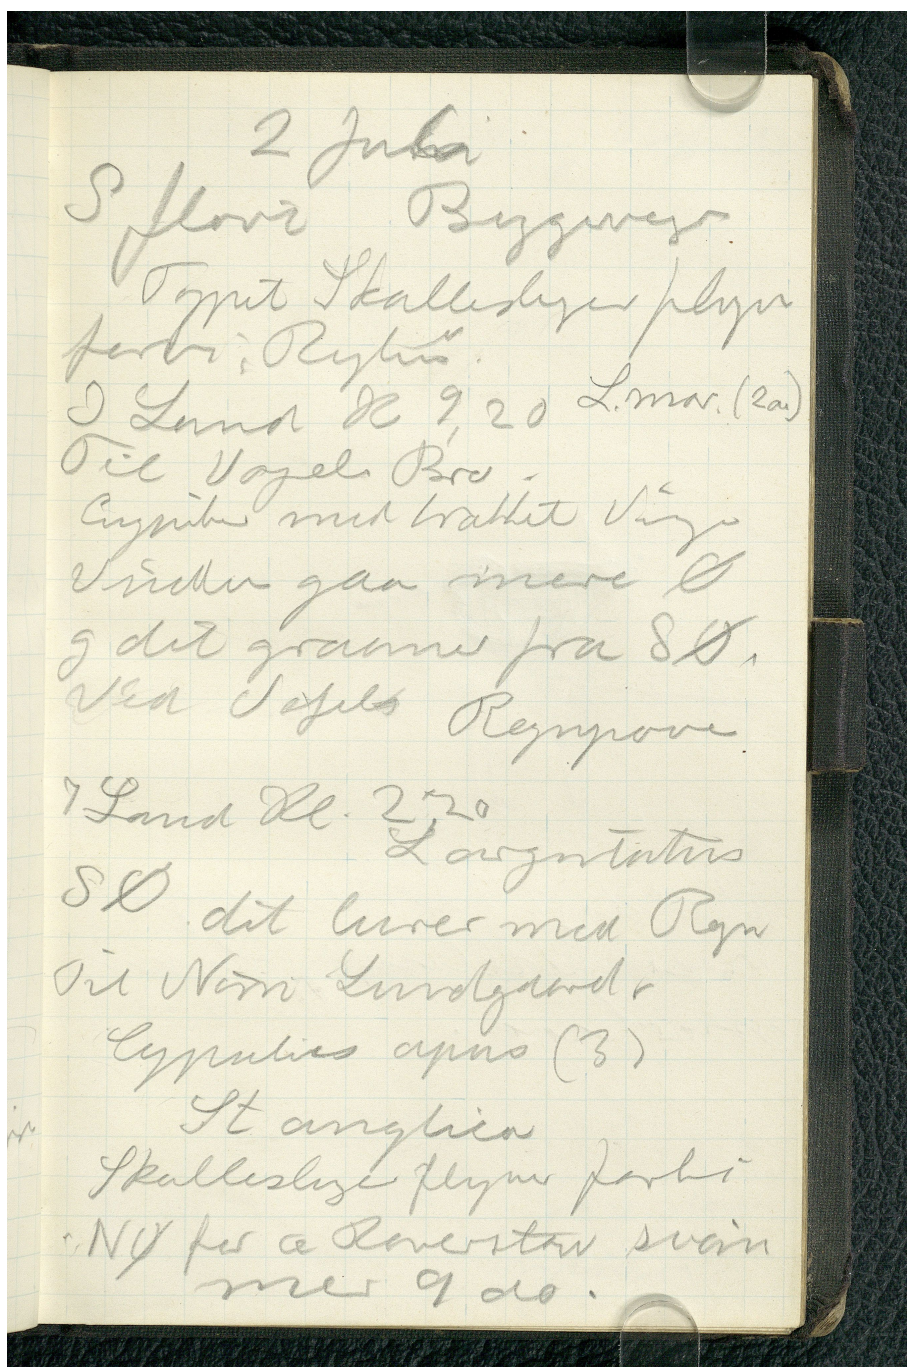 2 Juli
S flovt Byggevejr.
Toppet Skallesluger flyver
forbi, Reylhus.
I Land Kl 9,20 L. mar. (2 a)
Til Vogels Bro.
med brækket Vinge
Vinden gaar mere Ø
g det graaner fra SØ.
Ved Vogels Regnspove.
I Land Kl. 2,20
L argentatus
SØ det lurer med Regn
Til Nørre Lundgaard.
Cypselus apus (3)
St anglica
Skallesluger flyver forbi
NØ for svøm
mer 9 do.